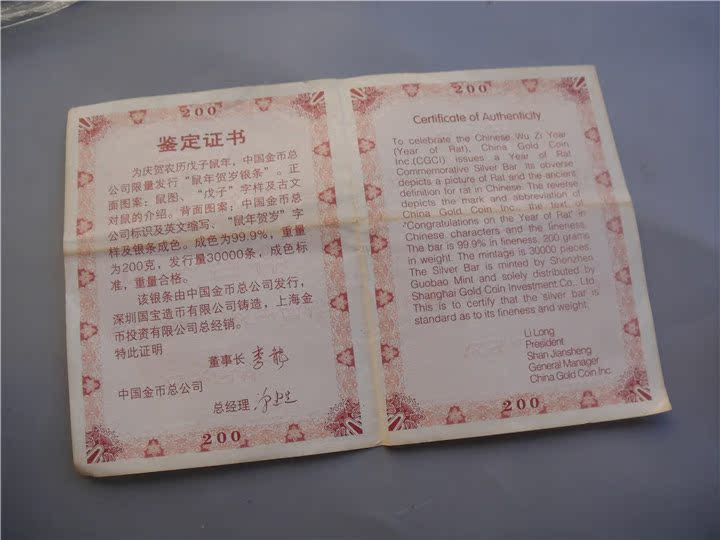 200
鉴定证书
为庆贺农历戊子鼠年，中国金币总
公司限量发行“鼠年贺岁银条”。正
面图案：鼠图、“戊子”字样及古文
对鼠的介绍。背面图案：中国金币总
公司标识及英文缩写、“鼠年贺岁”字
样及银条成色。成色为99.9%，重量
为200克，发行量30000条，成色标
准，重量合格。
该银条由中国金币总公司发行，
深圳国宝造币有限公司铸造，上海金
币投资有限公司总经销。
特此证明
董事长
中国金币总公司
总经理
200
200
Certificate of Authenticity
To celebrate the Chinese Wu Zi Year
(Year of Rat), China Gold Coin
Inc.(CGCI) issues a Year of Rat
Commemorative Silver Bar. Its obverse
depicts a picture of Rat and the ancient
definition for rat in Chinese. The reverse
depicts the mark and abbreviation of
China Gold Coin Inc., the text of
"Congratulations on the Year of Rat" in
Chinese characters and the fineness.
The bar is 99.9% in fineness, 200 grams
in weight. The mintage is 30000 pieces.
The Silver Bar is minted by Shenzhen
Guobao Mint and solely distributed by
Shanghai Gold Coin Investment Co., Ltd.
This is to certify that the silver bar is
standard as to its fineness and weight.
Li Long
President
Shan Jiansheng
General Manager
China Gold Coin Inc.
200